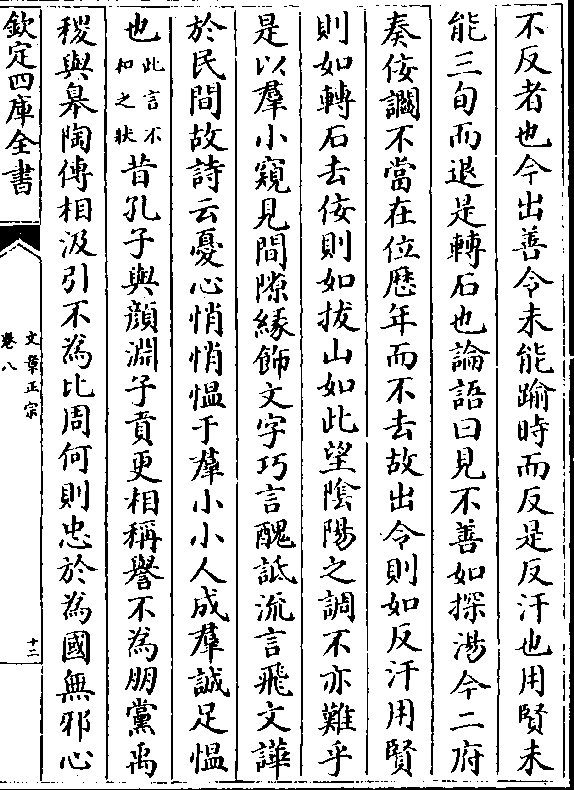 不反者也今出善令未能踰時而反是反汗也用賢未
能三旬而退是轉石也論語曰見不善如探湯今二府
奏佞讇不當在位歷年而不去故出令則如反汗用賢
則如轉石去佞則如拔山如此望陰陽之調不亦難乎
是以羣小窺見間隙緣飾文字巧言醜詆流言飛文譁
於民間故詩云憂心悄悄愠于羣小小人成羣誠足愠
也此言不和之狀昔孔子與顔淵子貢更相稱譽不為朋黨禹
稷與皋陶傳相汲引不為比周何則忠於為國無邪心
欽定四庫全書
文章正宗
卷八
十二